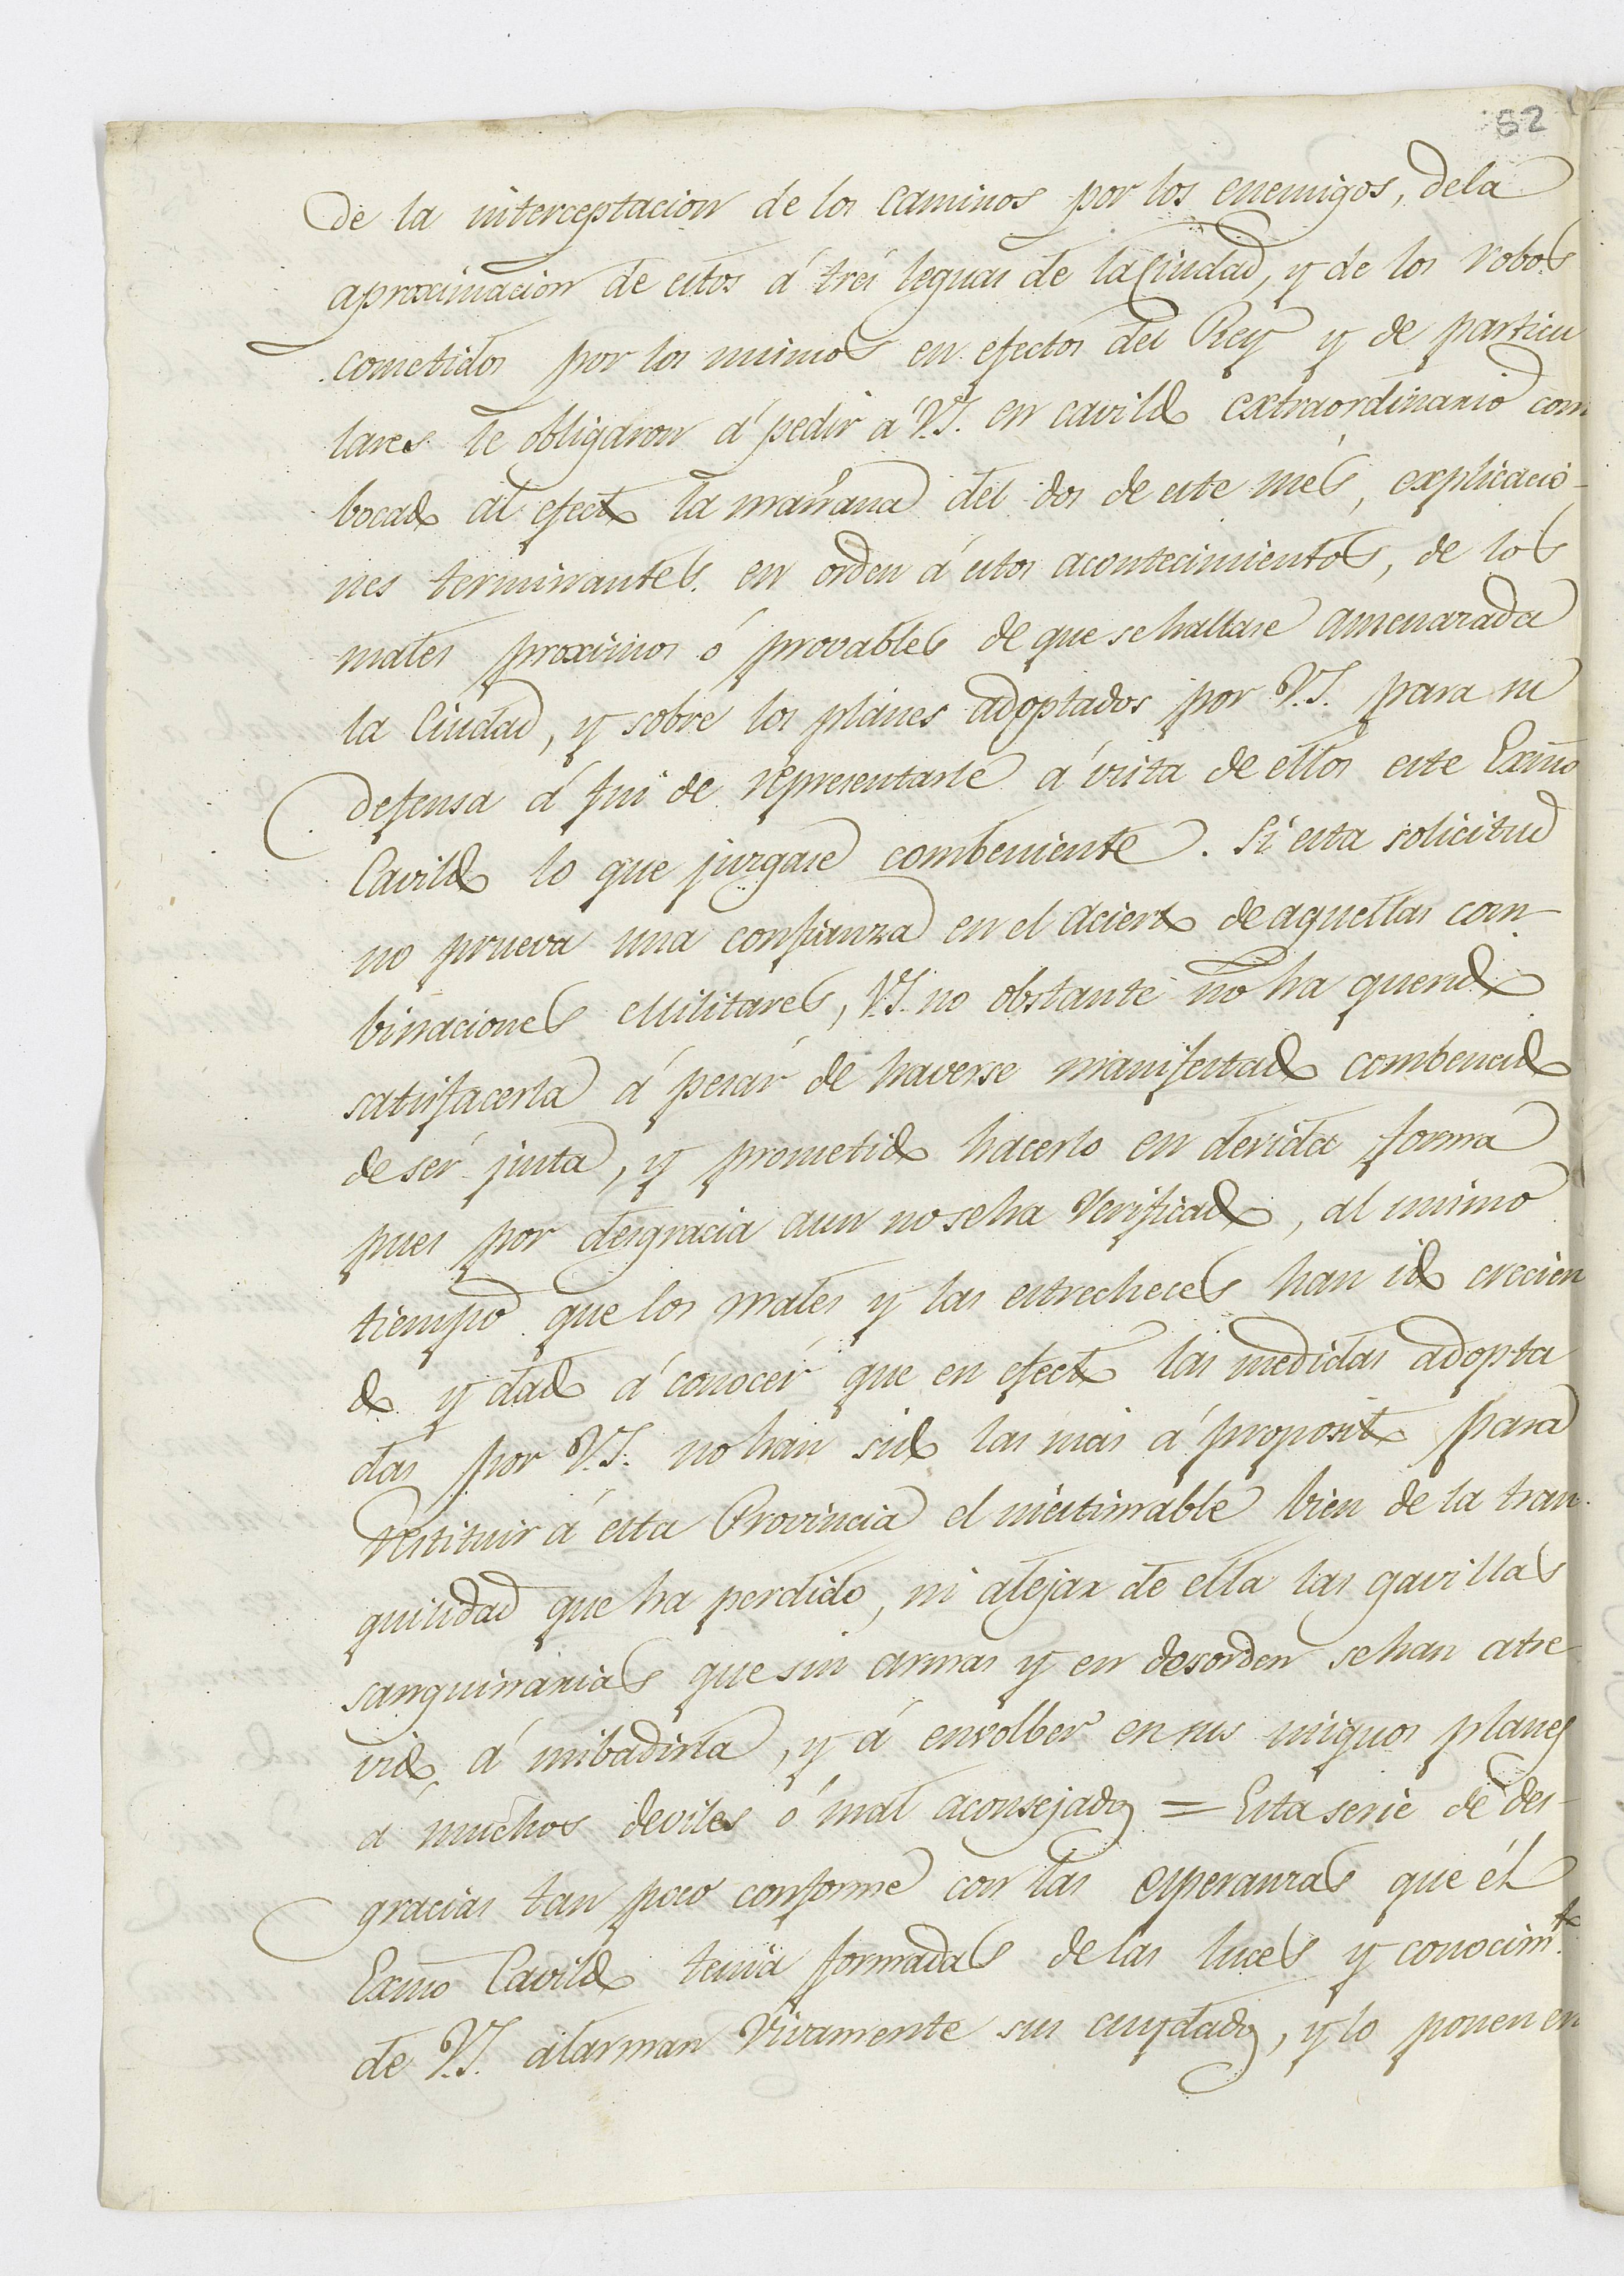 82
de la interceptacion de los caminos por los enemigos, dela
aproximacion de estos á tres leguas de la Ciudad, y de los robos
cometidos por los mismos en efectos del Rey y de particu
lares le obligaron á pedir á V.S. en cavildo extraordinario com
bocado al efecto la mañana del dos de este mes, explicacio-
nes terminantes en orden á estos acontecimientos, de los
males proximos ó provables de que se hallase amenazada
la Ciudad, y sobre los planes adoptados por V.S. para su
defensa á fin de representarle á vista de ellos este Exmo
Cavildo lo que juzgase combeniente. Si esta solicitud
no prueva una confianza en el acierto de aquellas com-
binaciones Militares, V.S. no obstante no ha querido
satisfacerla á pesar de haverse manifestado combencido
de sér justa, y prometido hacerlo en devida forma
pues por desgracia aun no se ha verificado, al mismo
tiempo que los males y las estrecheces han ido crecien
do y dado á conocér que en efecto las medidas adopta
das por V.S. no han sido las mas á proposito para
restituir á esta Provincia el inestimable bien de la tran
quilidad que ha perdido, ni alejar de ella las gavillas
sanguinarias que sin armas y en desorden se han atre
vido á imbadirla, y á envolber en sus iniquos planes
á muchos deviles ó mal aconsejados = Esta serie de des-
gracias tan poco conforme con las esperanzas que él
Exmo Cavildo tenia formadas de las luces y conocimto.
de V.S. alarman vivamente sus cuydados, y lo ponen en